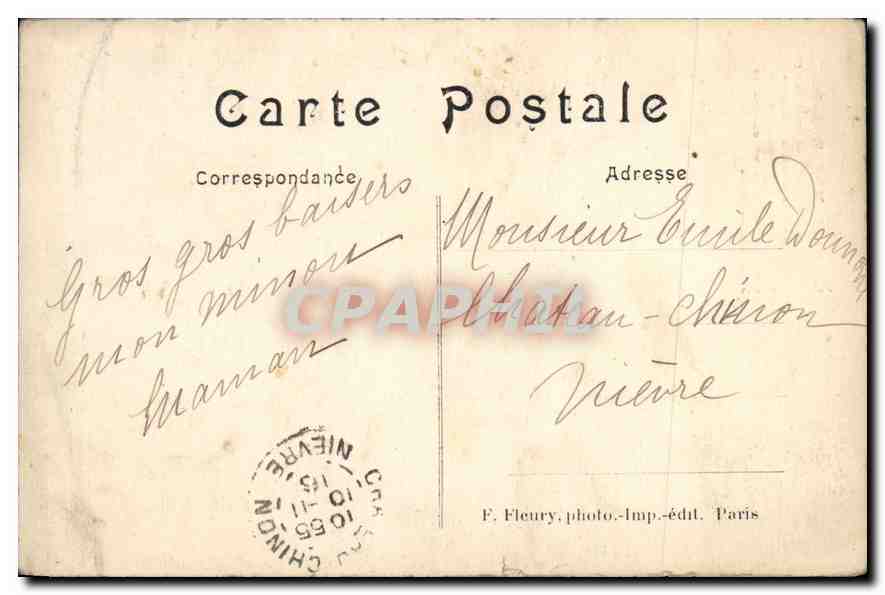 Carte Postale
Correspondance
Gros gros baisers
mon minou
Maman
Adresse
Monsieur Emile
Château-Chinon
Nièvre
CPAPHIL
CHINON
NIEVRE
10 55
10-11
16
F. Fleury, photo.-Imp.-édit. Paris